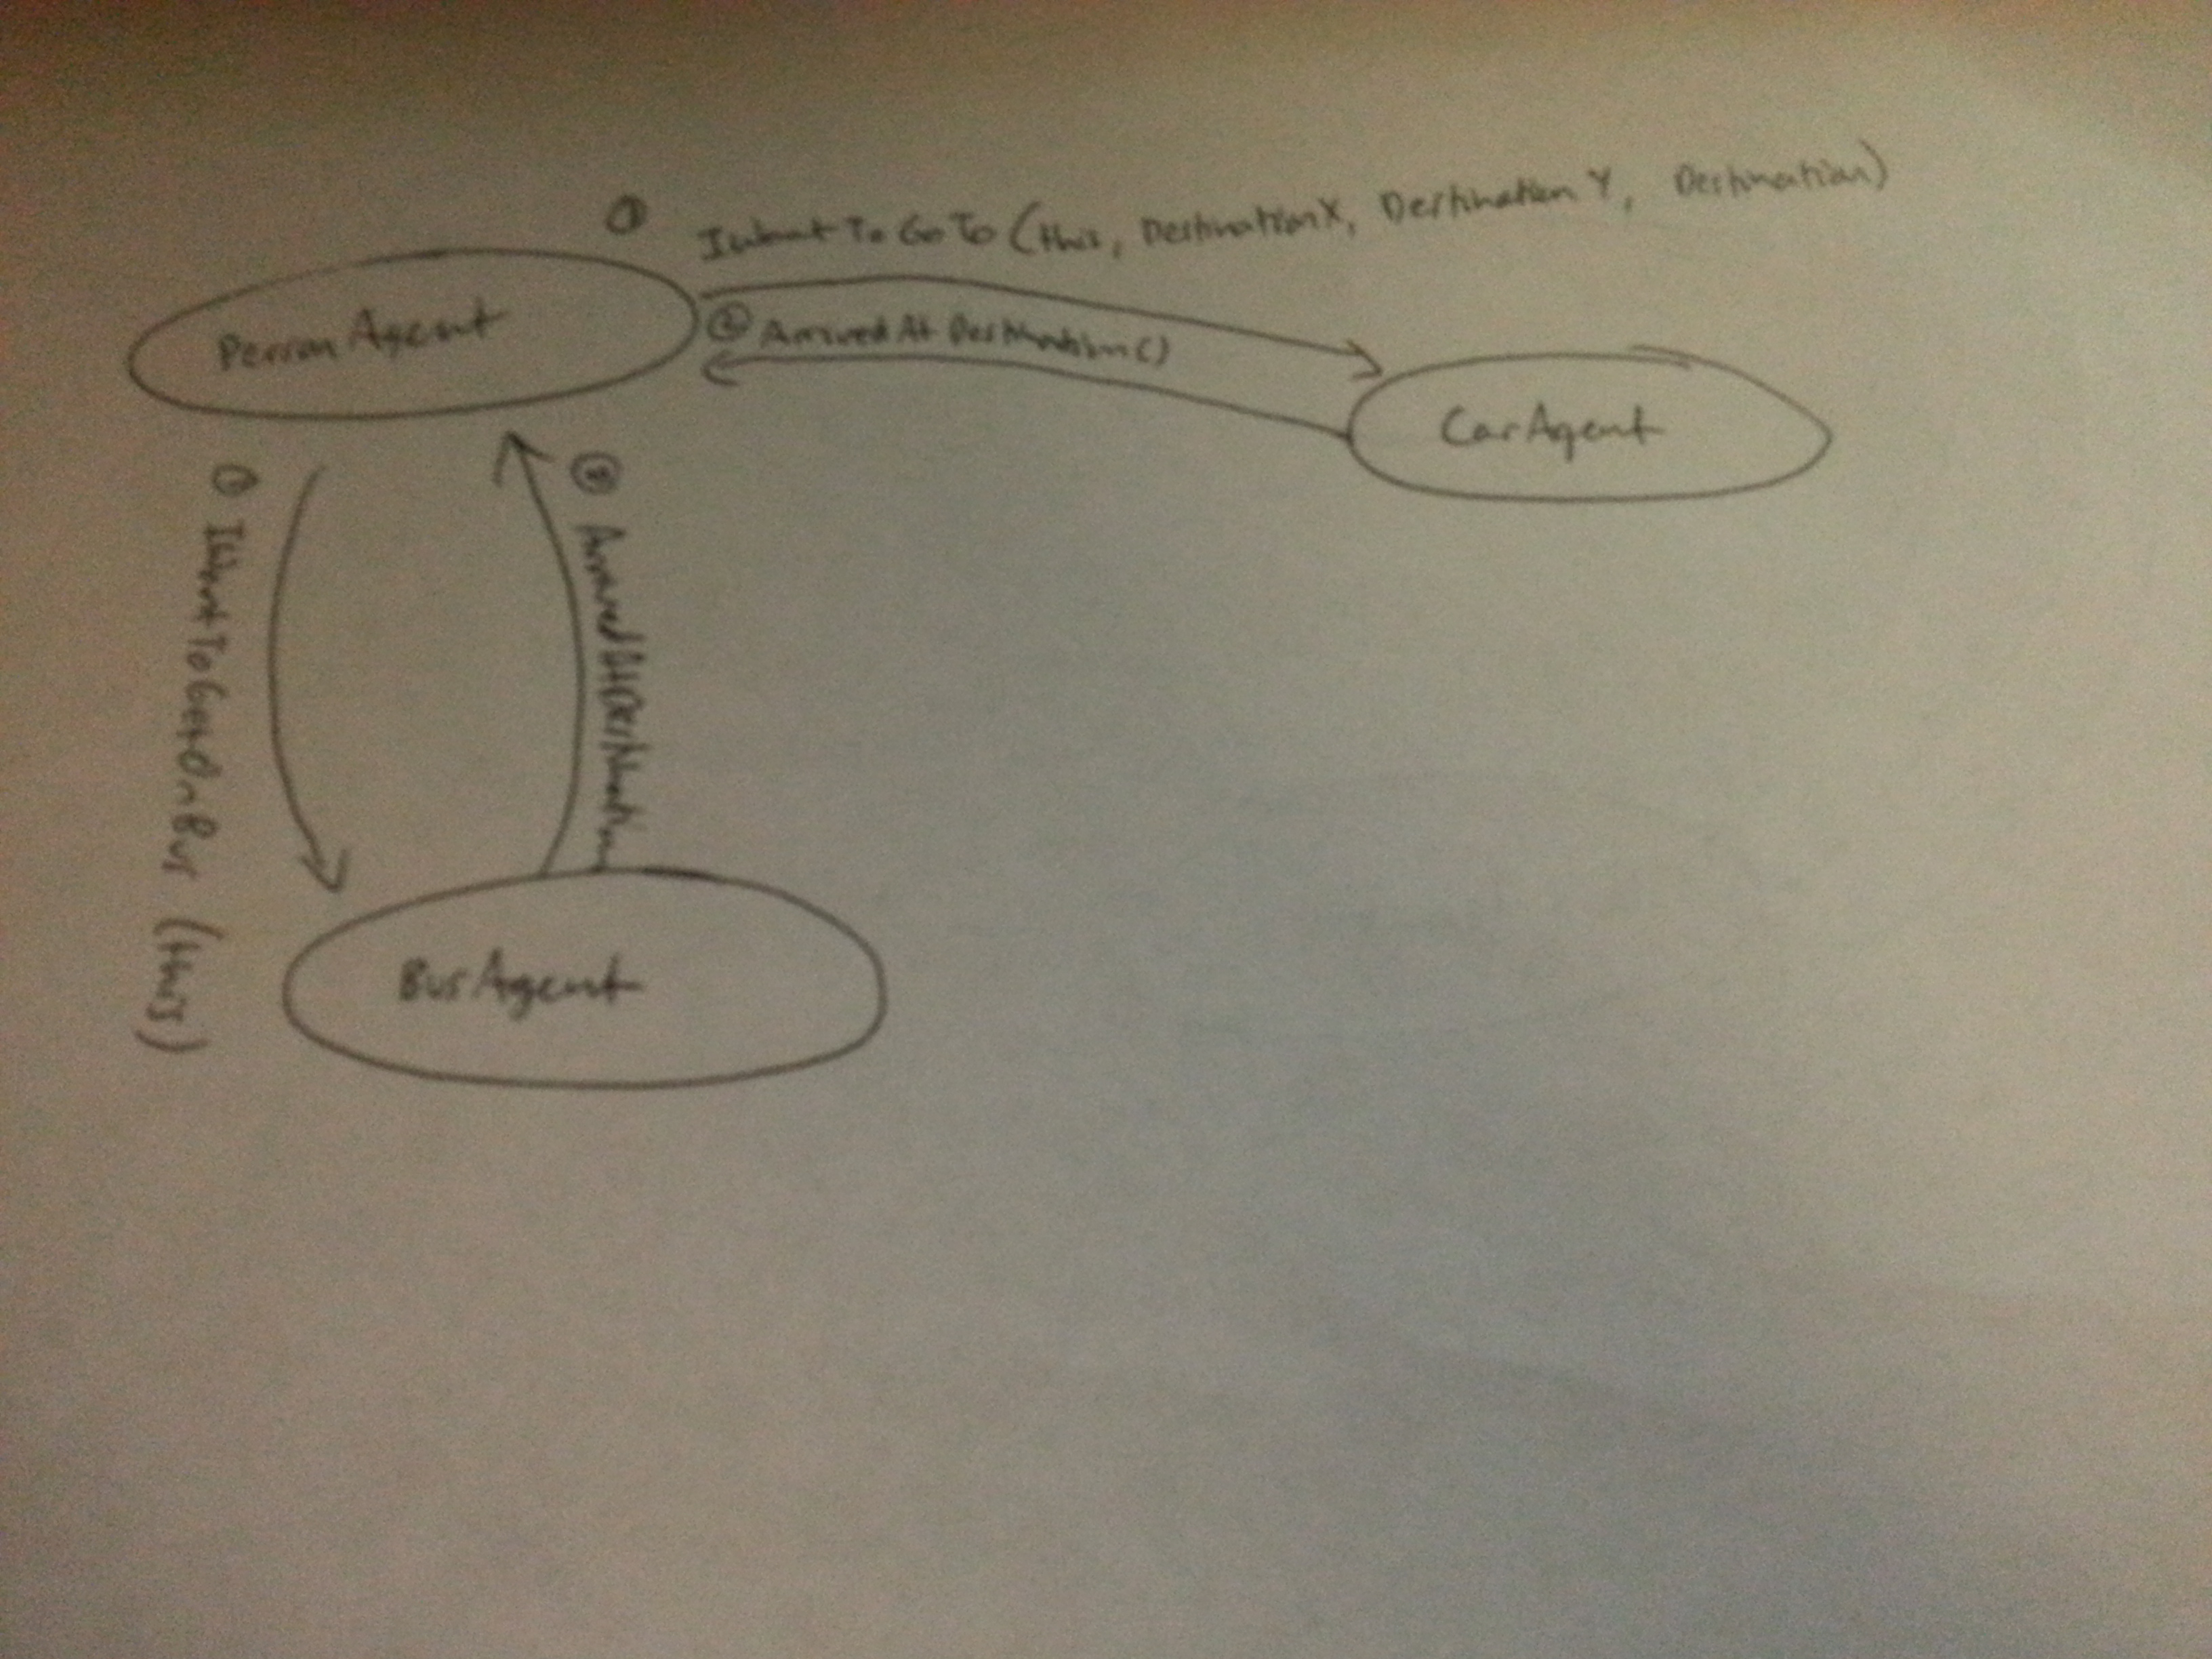 ① IWant To Go To (this, DestinationX, Destination Y, Destination)
PersonAgent
② Arrived At Destination()
CarAgent
① IWantToGetOnBus (this)
② ArrivedAtDestination
BusAgent